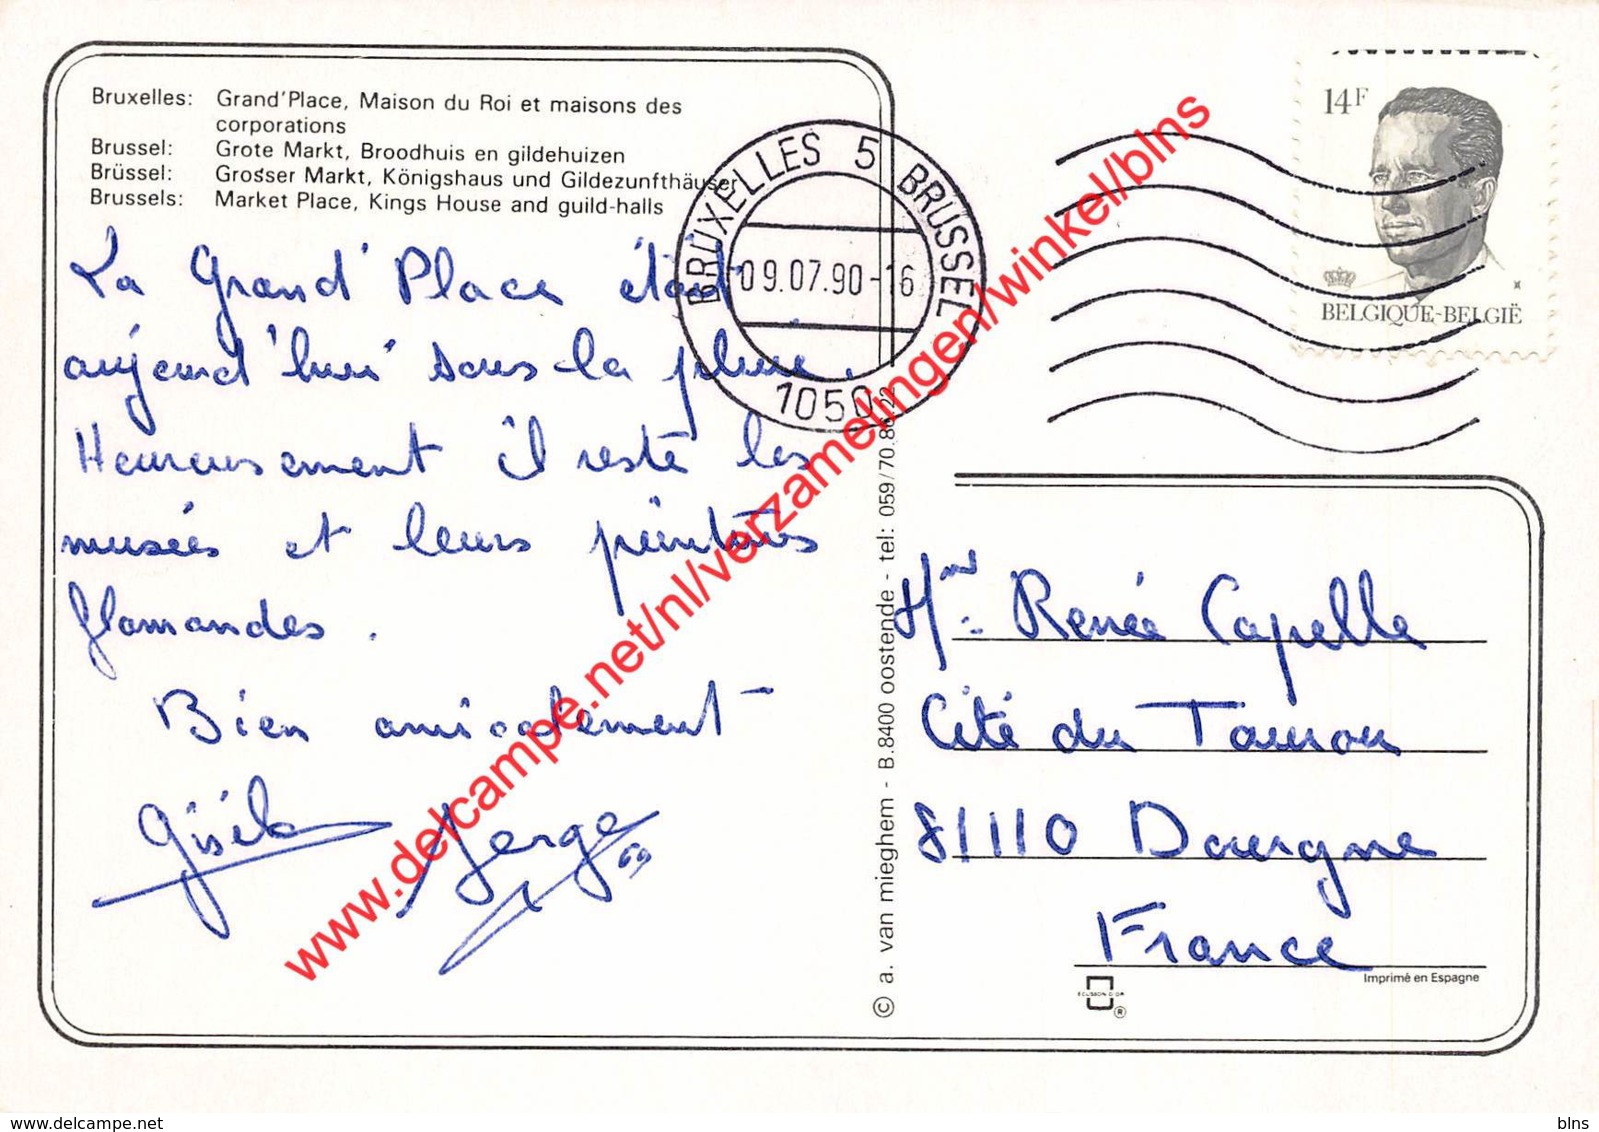 Bruxelles: Grand'Place, Maison du Roi et maisons des
corporations
Brussel: Grote Markt, Broodhuis en gildehuizen
Brüssel: Grosser Markt, Königshaus und Gildezunfthäuser
Brussels: Market Place, Kings House and guild-halls
La Grand'Place était
aujourd'hui sous la pluie.
Heureusement il reste les
musées et leurs peintures
flamandes.
Bien amicalement
Gisèle Serge
BRUXELLES 5 BRUSSEL
09.07.90-16
1050
14F
BELGIQUE-BELGIË
© a. van mieghem - B.8400 oostende - tel: 059/70.86.22
Mme Renée Capelle
Cité du Tauron
81110 Dourgne
France
Imprimé en Espagne
ECUSSON D'OR
®
www.delcampe.net/nl/verzamelingen/winkel/blns
delcampe.net
blns